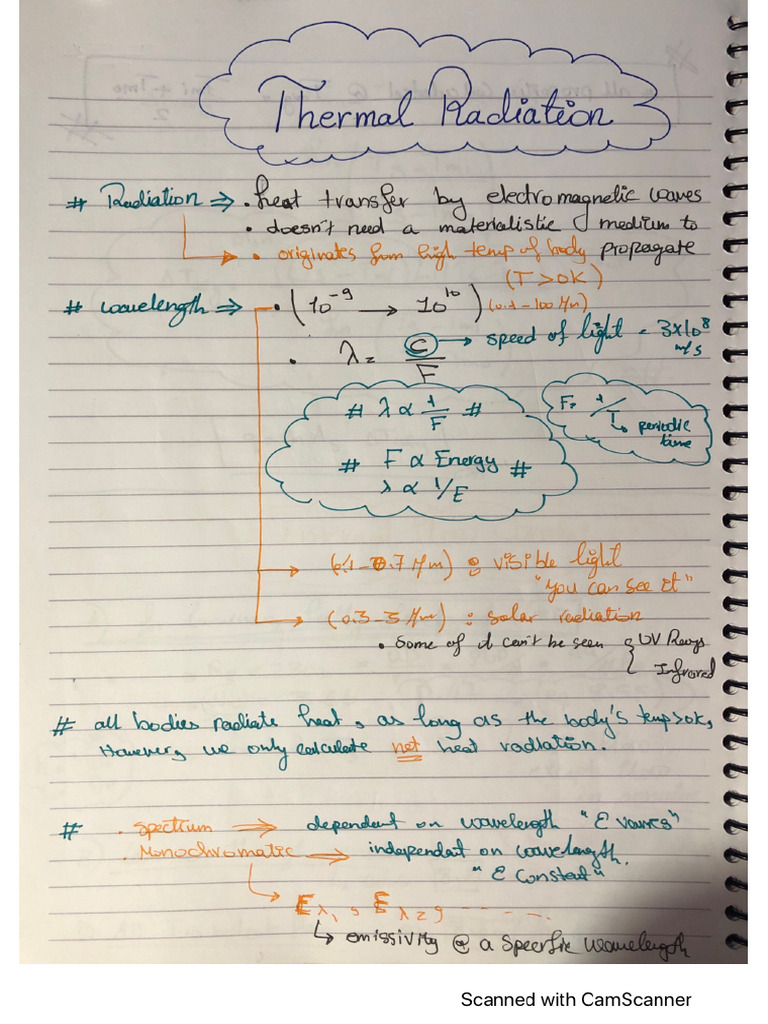 Thermal Radiation
# Radiation ⇒ • heat transfer by electromagnetic waves
• doesn't need a materialistic medium to
• originates from high temp of body propagate
(T > 0K)
# wavelength ⇒ • (10⁻⁹ → 10¹⁰) (0.1 - 100 μm)
• λ = C/F → speed of light = 3x10⁸ m/s
# λ ∝ 1/F #
F = 1/T ↳ periodic time
# F ∝ Energy #
λ ∝ 1/E
→ (0.1 - 0.7 μm) : visible light
"you can see it"
→ (0.3 - 3 μm) : solar radiation
• Some of it can't be seen { UV Rays
Infrared
# all bodies radiate heat, as long as the body's temp > 0K,
However, we only calculate net heat radiation.
# • Spectrum ⇒ dependent on wavelength "ε varies"
• Monochromatic ⇒ independent on wavelength.
"ε Constant"
↳ Eλ₁, Eλ₂, - - - - -.
↳ emissivity @ a specific wavelength
Scanned with CamScanner